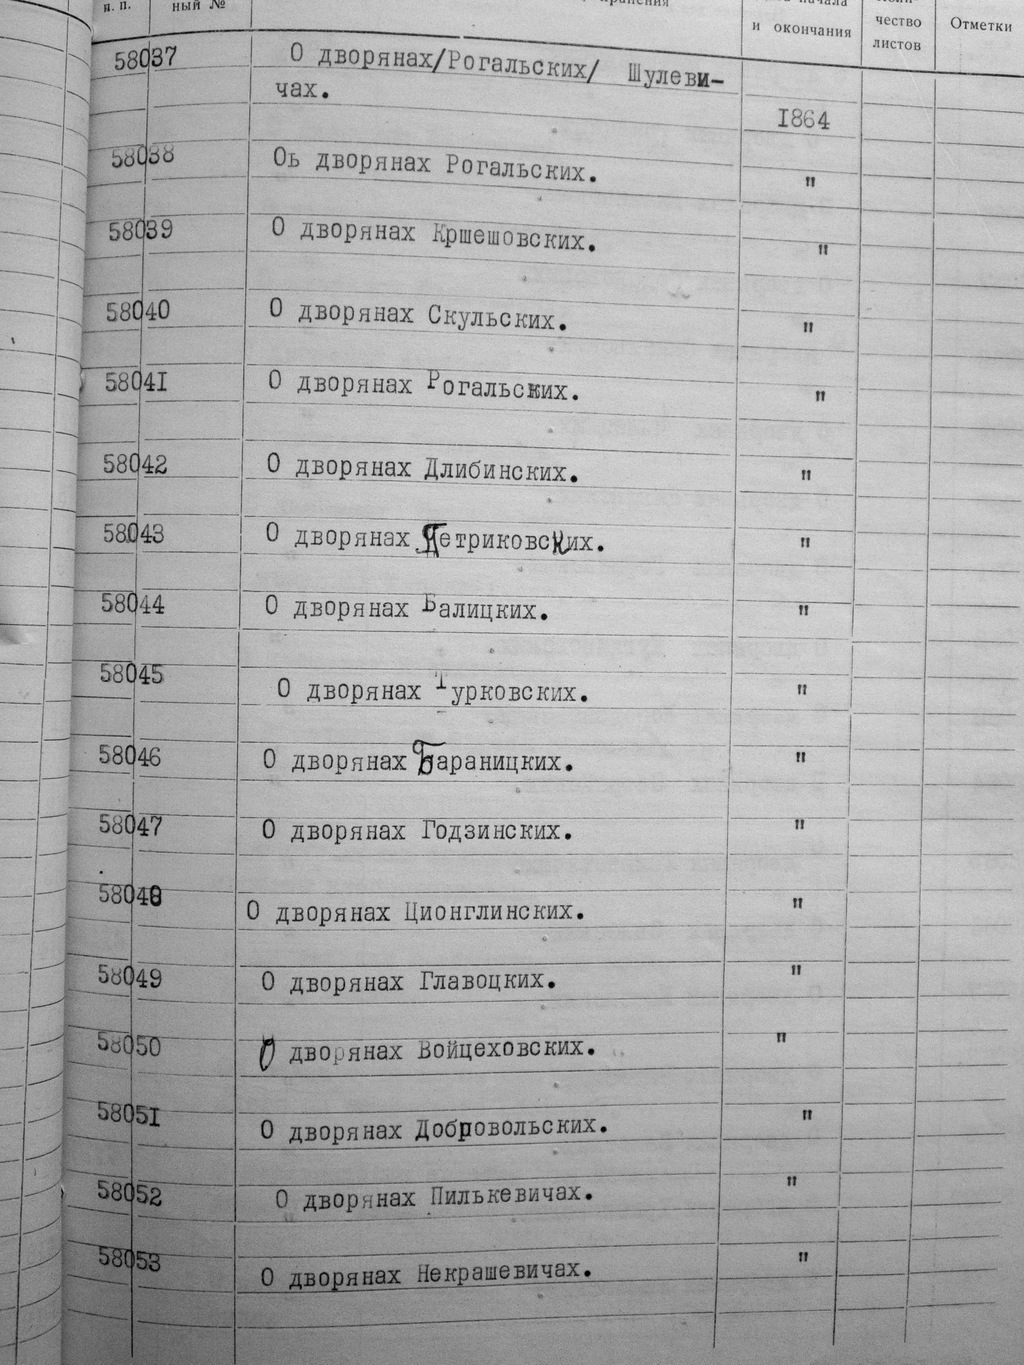 п. п.
ный №
начала
и окончания
чество
листов
Отметки
58037 О дворянах/Рогальских/ Шулеви-
чах.
1864
58038 Оь дворянах Рогальских. "
58039 О дворянах Кршешовских. "
58040 О дворянах Скульских. "
58041 О дворянах Рогальских. "
58042 О дворянах Длибинских. "
58043 О дворянах Петриковских. "
58044 О дворянах Балицких. "
58045 О дворянах Турковских. "
58046 О дворянах Бараницких. "
58047 О дворянах Годзинских. "
58048 О дворянах Ционглинских. "
58049 О дворянах Главоцких. "
58050 О дворянах Войцеховских. "
58051 О дворянах Добровольских. "
58052 О дворянах Пилькевичах. "
58053 О дворянах Некрашевичах. "